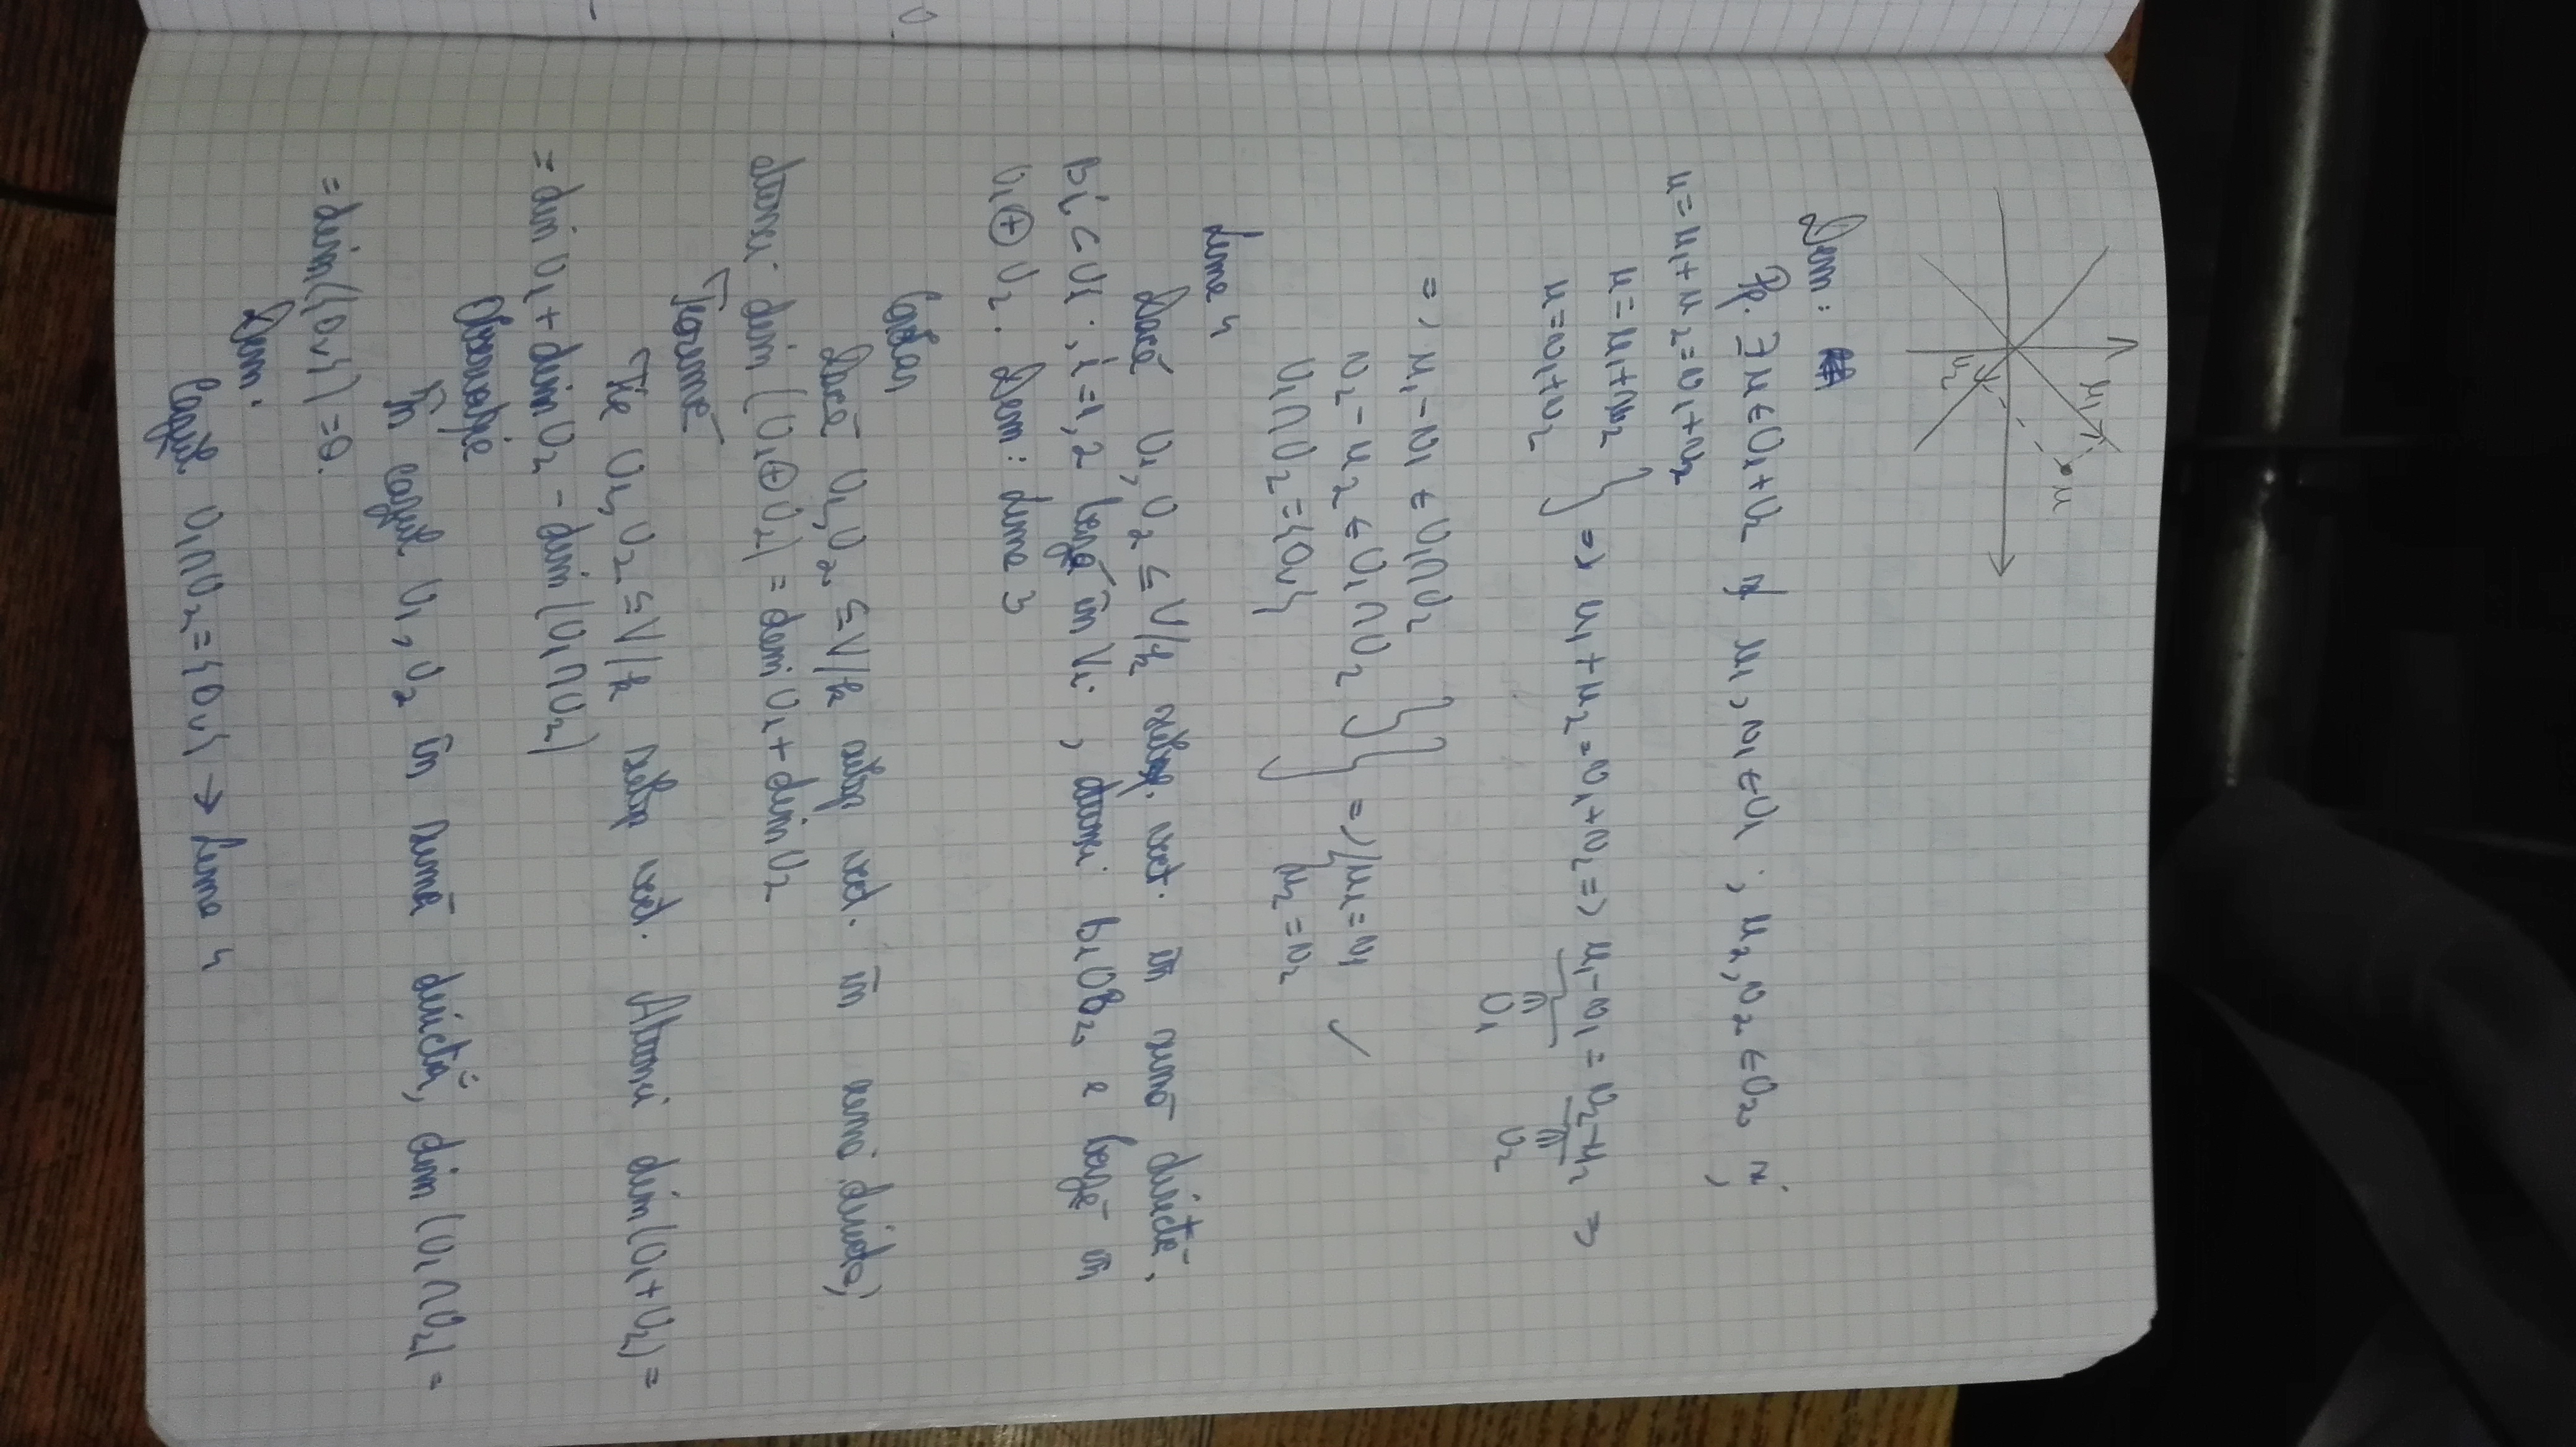 u
u1
u2
Dem:
Pp. ∃ u ∈ U1+U2 și u1, v1 ∈ U1 ; u2, v2 ∈ U2, a.î.
u = u1 + u2 = v1 + v2
u = u1 + u2
u = v1 + v2 } => u1 + u2 = v1 + v2 => u1 - v1 = v2 - u2 =>
U1 U2
=> u1 - v1 ∈ U1∩U2
v2 - u2 ∈ U1∩U2
U1∩U2 = {0v} } => { u1 = v1
u2 = v2 ✓
Lema 4
Dacă U1, U2 ≤ V/k subsp. vect. în sumă directă,
Bi ⊂ Ui, i=1,2 bază în Vi, atunci B1∪B2 e bază în
U1 ⊕ U2. Dem: Lema 3
Corolar
Dacă U1, U2 ≤ V/k subsp vect. în sumă directă,
atunci dim (U1 ⊕ U2) = dim U1 + dim U2
Teoremă
Fie U1, U2 ≤ V/k subsp vect. Atunci dim (U1 + U2) =
= dim U1 + dim U2 - dim (U1∩U2)
Observație
În cazul U1, U2 în sumă directă, dim (U1∩U2) =
= dim ({0v}) = 0.
Dem:
Cazul U1∩U2 = {0v} → Lema 4